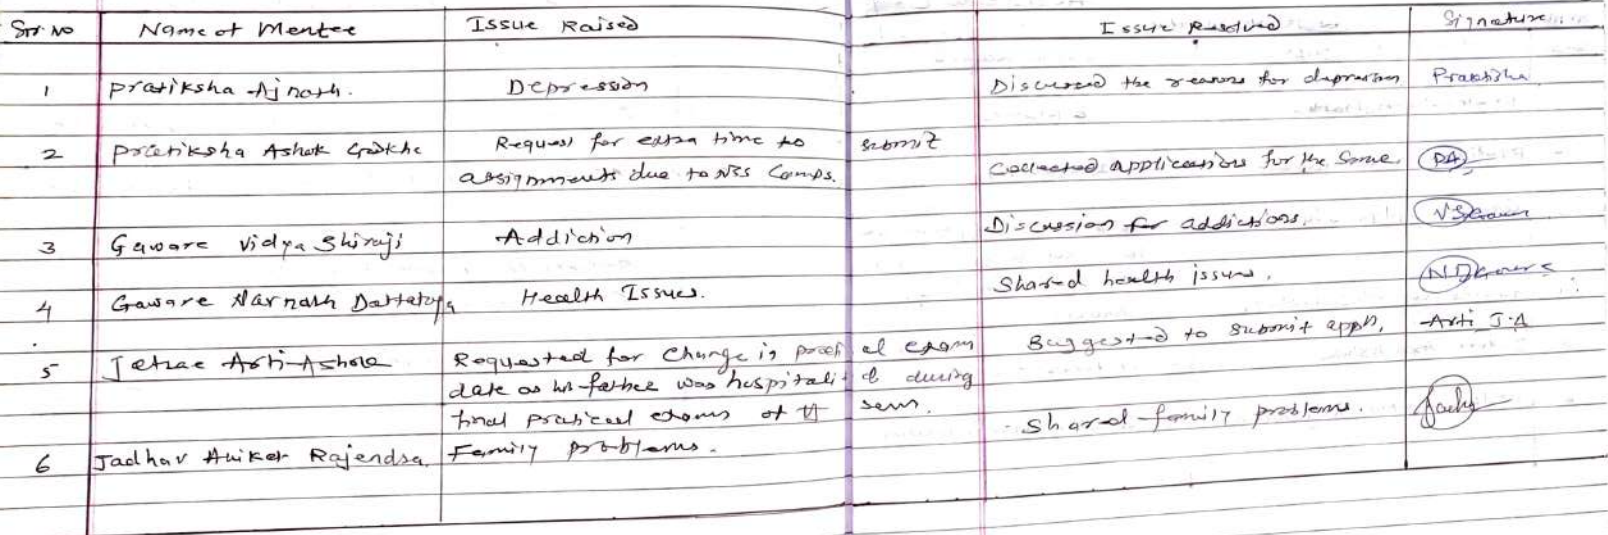 Sr. No Name of Mentee Issue Raised Issue Resolved Signature
1 Pratiksha Ajnath. Depression Discussed the reasons for depression Pratiksha
2 Pratiksha Ashok Request for extra time to submit
assignments due to NSS Camps. Collected applications for the Same. PA
3 Gaware Vidya Shivaji Addiction Discussion for addictions.
4 Gaware Harnath Dattatraya Health Issues. Shared health issues.
5 Arti Ashok Requested for change in practical exam Suggested to submit appn, Arti J.A
date as his father was hospitalized during
final practical exams of sem.
6 Jadhav Aniket Rajendra. Family problems. Shared family problems.